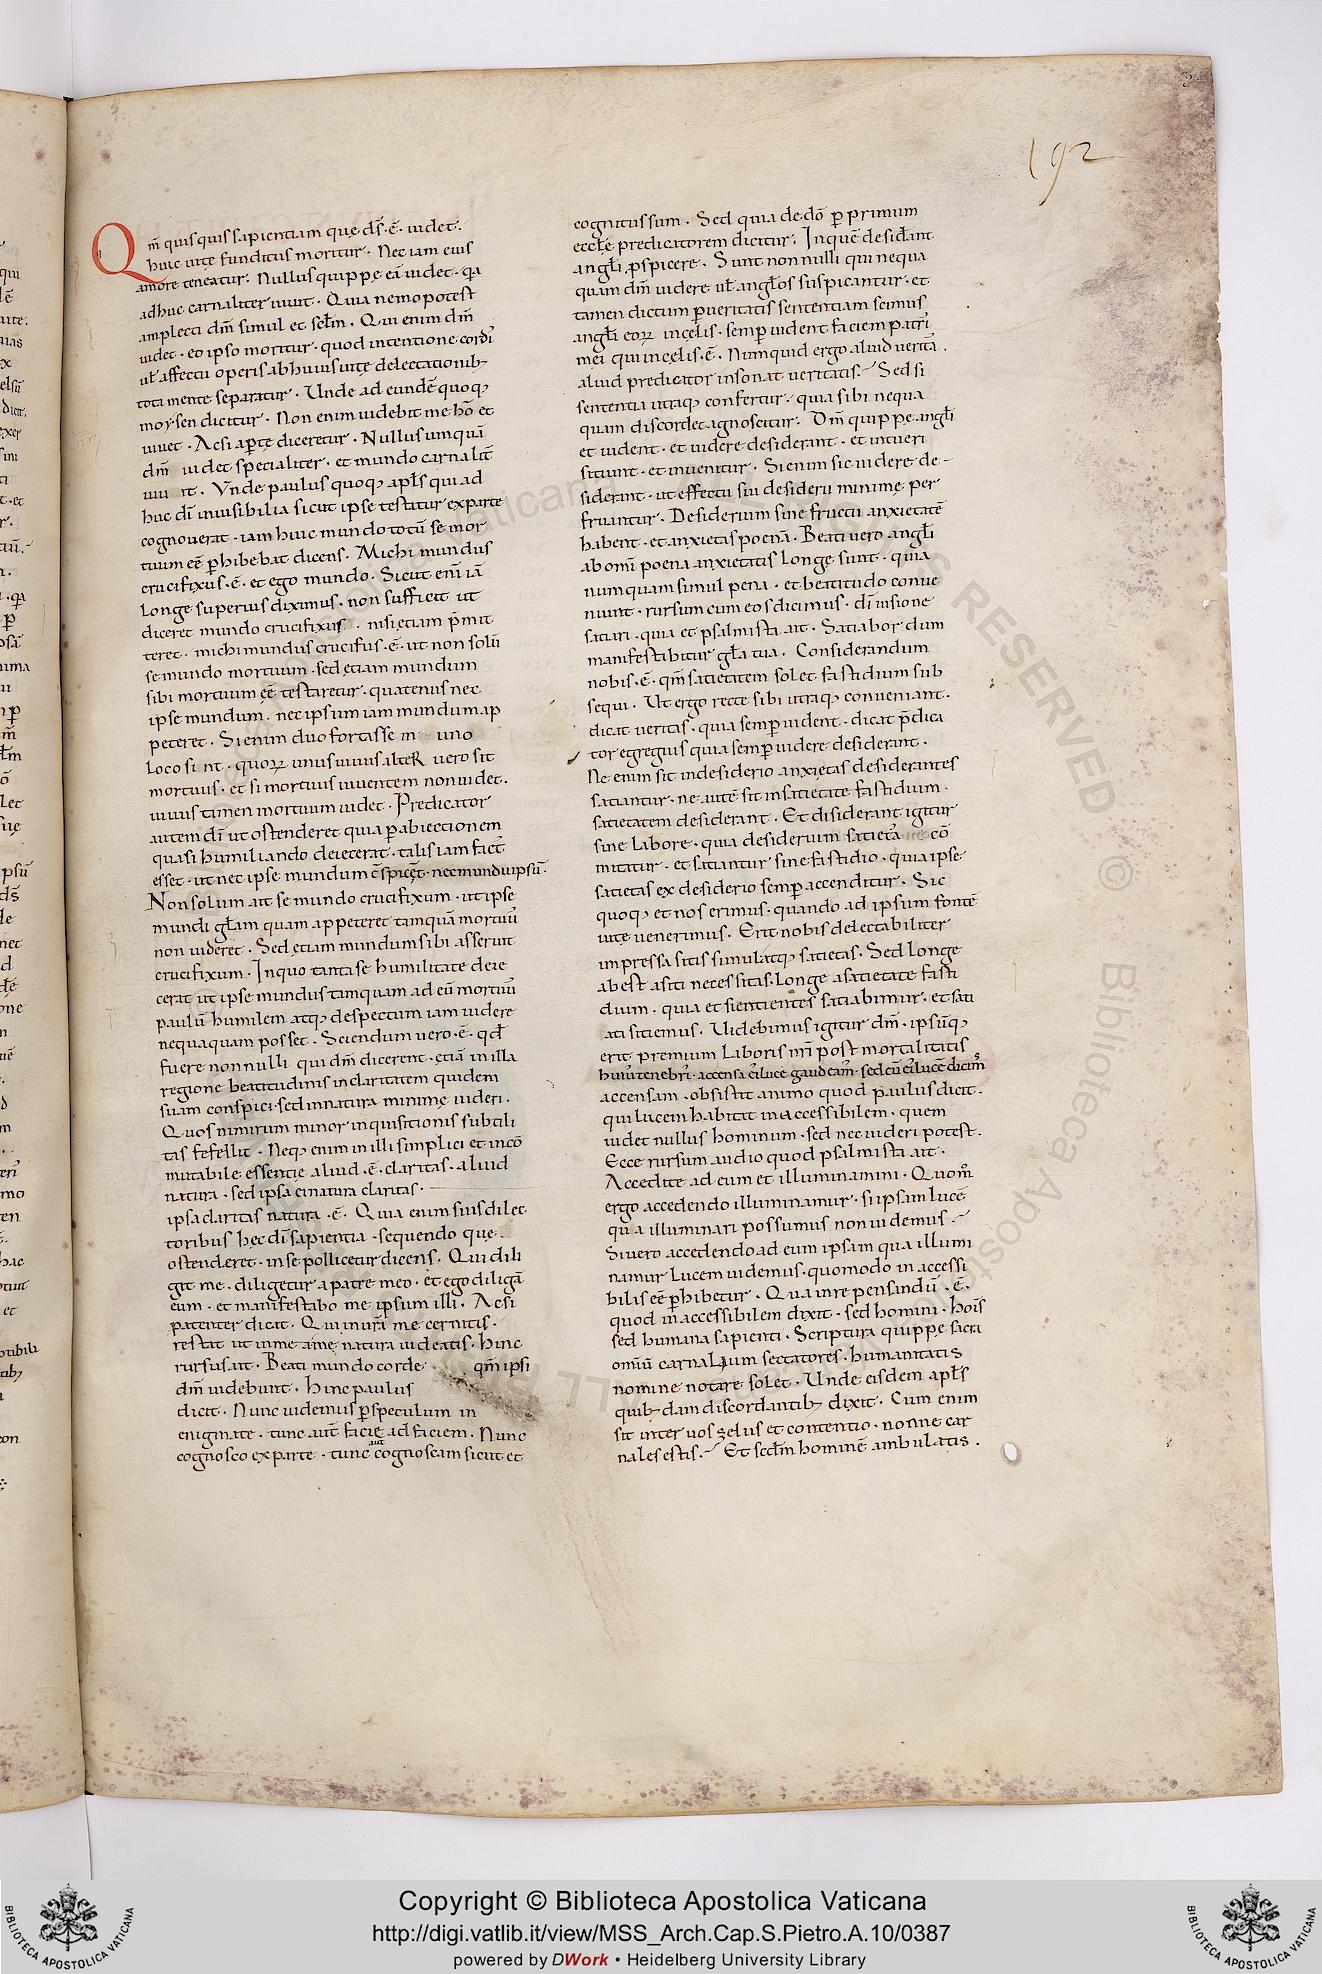 192
Qm̄ quis quis sapientiam quę ds̄ · ē · uidet ·
huic uitę funditus moritur · Nec iam eius
amore teneatur · Nullus quippę eā uidet · q̄a
adhuc carnaliter uiuit · Quia nemo potest
amplecti dm̄ simul et sc̄lm · Qui enim dm̄
uidet · eo ipso moritur · quod intentione cordi᷒
ul̄ affectu operis ab huius uitę delectationib;
tota mente separatur · Unde ad eundē quoq;
moysen dicitur · Non enim uidebit me ho᷒ et
uiuet · Ac si ap̄te diceretur · Nullus umquā
dm̄ uidet specialiter · et mundo carnalit̄
uiu it · Vnde paulus quoq; apls̄ qui ad
huc dī inuisibilia sicut ipse testatur ex parte
cognouerat · iam huic mundo totū se mor
tuum eē p̄hibebat dicens · Michi mundus
crucifixus · ē · et ego mundo · Sicut eni᷒ iā
longe superius diximus · non suffic̄it ut
diceret mundo crucifixus · nisi etiam p̄mit
teret · michi mundus crucifus · ē · ut non solū
se mundo mortuum · sed ętiam mundum
sibi mortuum ēe testaretur · quatenus nec
ipse mundum · nec ipsum iam mundum ap
peteret · Si enim duo fortasse in uno
loco si nt · quoꝝ unus uiuus alteR uero sit
mortuus · et si mortuus uiuentem non uidet ·
uiuus tamen mortuum uidet · Predicator
autem dī ut ostenderet quia p̄ abiectionem
quasi humiliando deiecerat · talis iam fact᷒
esset · ut nec ipse mundum c̄spicęt · nec mundu ipsū ·
Non solum ait se mundo crucifixum · ut ipse
mundi gl̄am quam appeteret tamquā mortuū
non uideret · Sed ętiam mundum sibi asseruit
crucifixum · In quo tanta se humilitate deie
cerat ut ipse mundus tamquam ad eū mortuū
paulū humilem atq; despectum iam uidere
nequaquam posset · Sciendum uero · ē · qd̄
fuere non nulli qui dm̄ dicerent · ętiā in illa
regione beatitudinis in claritatem quidem
suam conspici · sed in natura minimę uideri ·
Quos nimirum minor inquisitionis subtili
tas fefellit · Neq; enim in illi simplici et incō
mutabile essentię aliud · ē · claritas · aliud
natura · sed ipsa ei natura claritas ·
ipsa claritas natura · ē · Quia enim suis dilec
toribus hęc dī sapientia · sequendo que
ostenderet · in se pollicetur dicens · Qui dili
git me · diligetur a patre meo · et ego diligā
eum · et manifestabo me ipsum illi · Ac si
patenter dicat · Qui in ur̄a me cernitis ·
restat ut in me amę natura uideatis · Hinc
rursus ait · Beati mundo corde · qm̄ ipsi
dm̄ uidebunt · Hinc paulus
dicit · Nunc uidemus p̄ speculum in
enigmate · tunc aut̄ facię ad faciem · Nunc
cognosco ex parte · tunc aut̄ cognoscam sicut et
cognitus sum · Sed quia de dō p̄ primum
eccl̄ę predicatorem dicitur · In quē desidant
angl̄i p̄spicere · Sunt non nulli qui nequa
quam dm̄ uidere ul̄ angl̄os suspicantur · et
tamen dictum p̄ ueritatis sententiam scimus
angl̄i eoꝝ in celis · semp̄ uident faciem patri᷒
mei qui in celis · ē · Numquid ergo aliud uerita᷒ ·
aliud predicator insonat ueritatis · Sed si
sententia utraq; confertur · quia sibi nequa
quam discordet agnoscitur · Dm̄ quippe angl̄i
et uident · et uidere desiderant · et intueri
sitiunt · et inuenitur · Si enim sic uidere de-
siderant · ut effectu sui desiderii minimę per
fruantur · Desiderium sine fructu anxietatē
habent · et anxietas poenā · Beati uero angl̄i
ab omī poena anxietatis longę sunt · quia
numquam simul pena · et beatitudo conue
niunt · rursum cum eos dicimus · dī uisione
satiari · quia et psalmista ait · Satiabor dum
manifestibitur gl̄a tua · Considerandum
nobis · ē · qm̄ satietatem solet fastidium sub
sequi · Ut ergo recte sibi utraq; conueniant ·
dicat ueritas · quia semp̄ uident · dicat p̄dica
tor egregius quia semp̄ uidere desiderant ·
Ne enim sit in desiderio anxiętas desiderantes
satiantur · ne autē sit in satietate fastidium ·
satietatem desiderant · Et disiderant igitur
sine labore · quia desiderium satieta᷒ cō
mitatur · et satiantur sine fastidio · quia ipse
satietas ex desiderio semp̄ accenditur · Sic
quoq; et nos erimus · quando ad ipsum fontē
uitę uenerimus · Erit nobis delectabiliter
impressa sitis simul atq; satietas · Sed longe
abest a siti necessitas · longe a satietate fasti
dium · quia et sientientes satiabimur · et sati
ati sitiemus · Uidebimus igitur dm̄ · ipsūq;
erit premium laboris nr̄i post mortalititis
hui᷒ tenebri᷒ · accensa ei᷒ luce gaudeam᷒ · sed cū ei᷒ lucē dicim᷒s
accensam · obsistit animo quod paulus dicit ·
qui lucem habitat inaccessibilem · quem
uidet nullus hominum · sed nec uideri potest ·
Ecce rursum audio quod psalmista ait ·
Accedite ad eum et illuminamini · Quom̄
ergo accedendo illuminamur · si ipsam lucē
qua illuminari possumus non uidemus ·
Si uero accedendo ad eum ipsam qua illumi
namur lucem uidemus · quomodo in accessi
bilis eē p̄hibetur · Qua in re pensandū · ē ·
quod inaccessibilem dixit · sed homini · hoīs
sed humana sapienti · Scriptura quippe sacra
omīū carnalium sectatores · humanitatis
nomine notare solet · Unde eisdem apls̄
quib; dam discordantib; dixit · Cum enim
sit inter uos zelus et contentio · nonne car
nales estis · Et secd̄m hominē ambulatis ·
Copyright © Biblioteca Apostolica Vaticana
http://digi.vatlib.it/view/MSS_Arch.Cap.S.Pietro.A.10/0387
powered by DWork • Heidelberg University Library